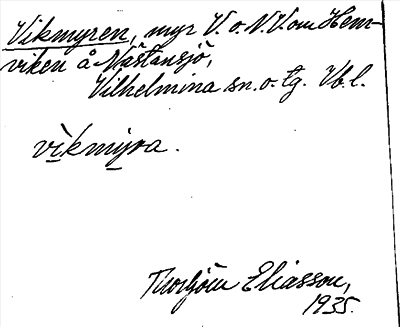 Vikmyren, myr V. o. N.V. om Hem-
viken å Nästansjö,
Vilhelmina sn. o. tg. Vb. l.
vikmyra.
Thorbjörn Eliasson,
1935.